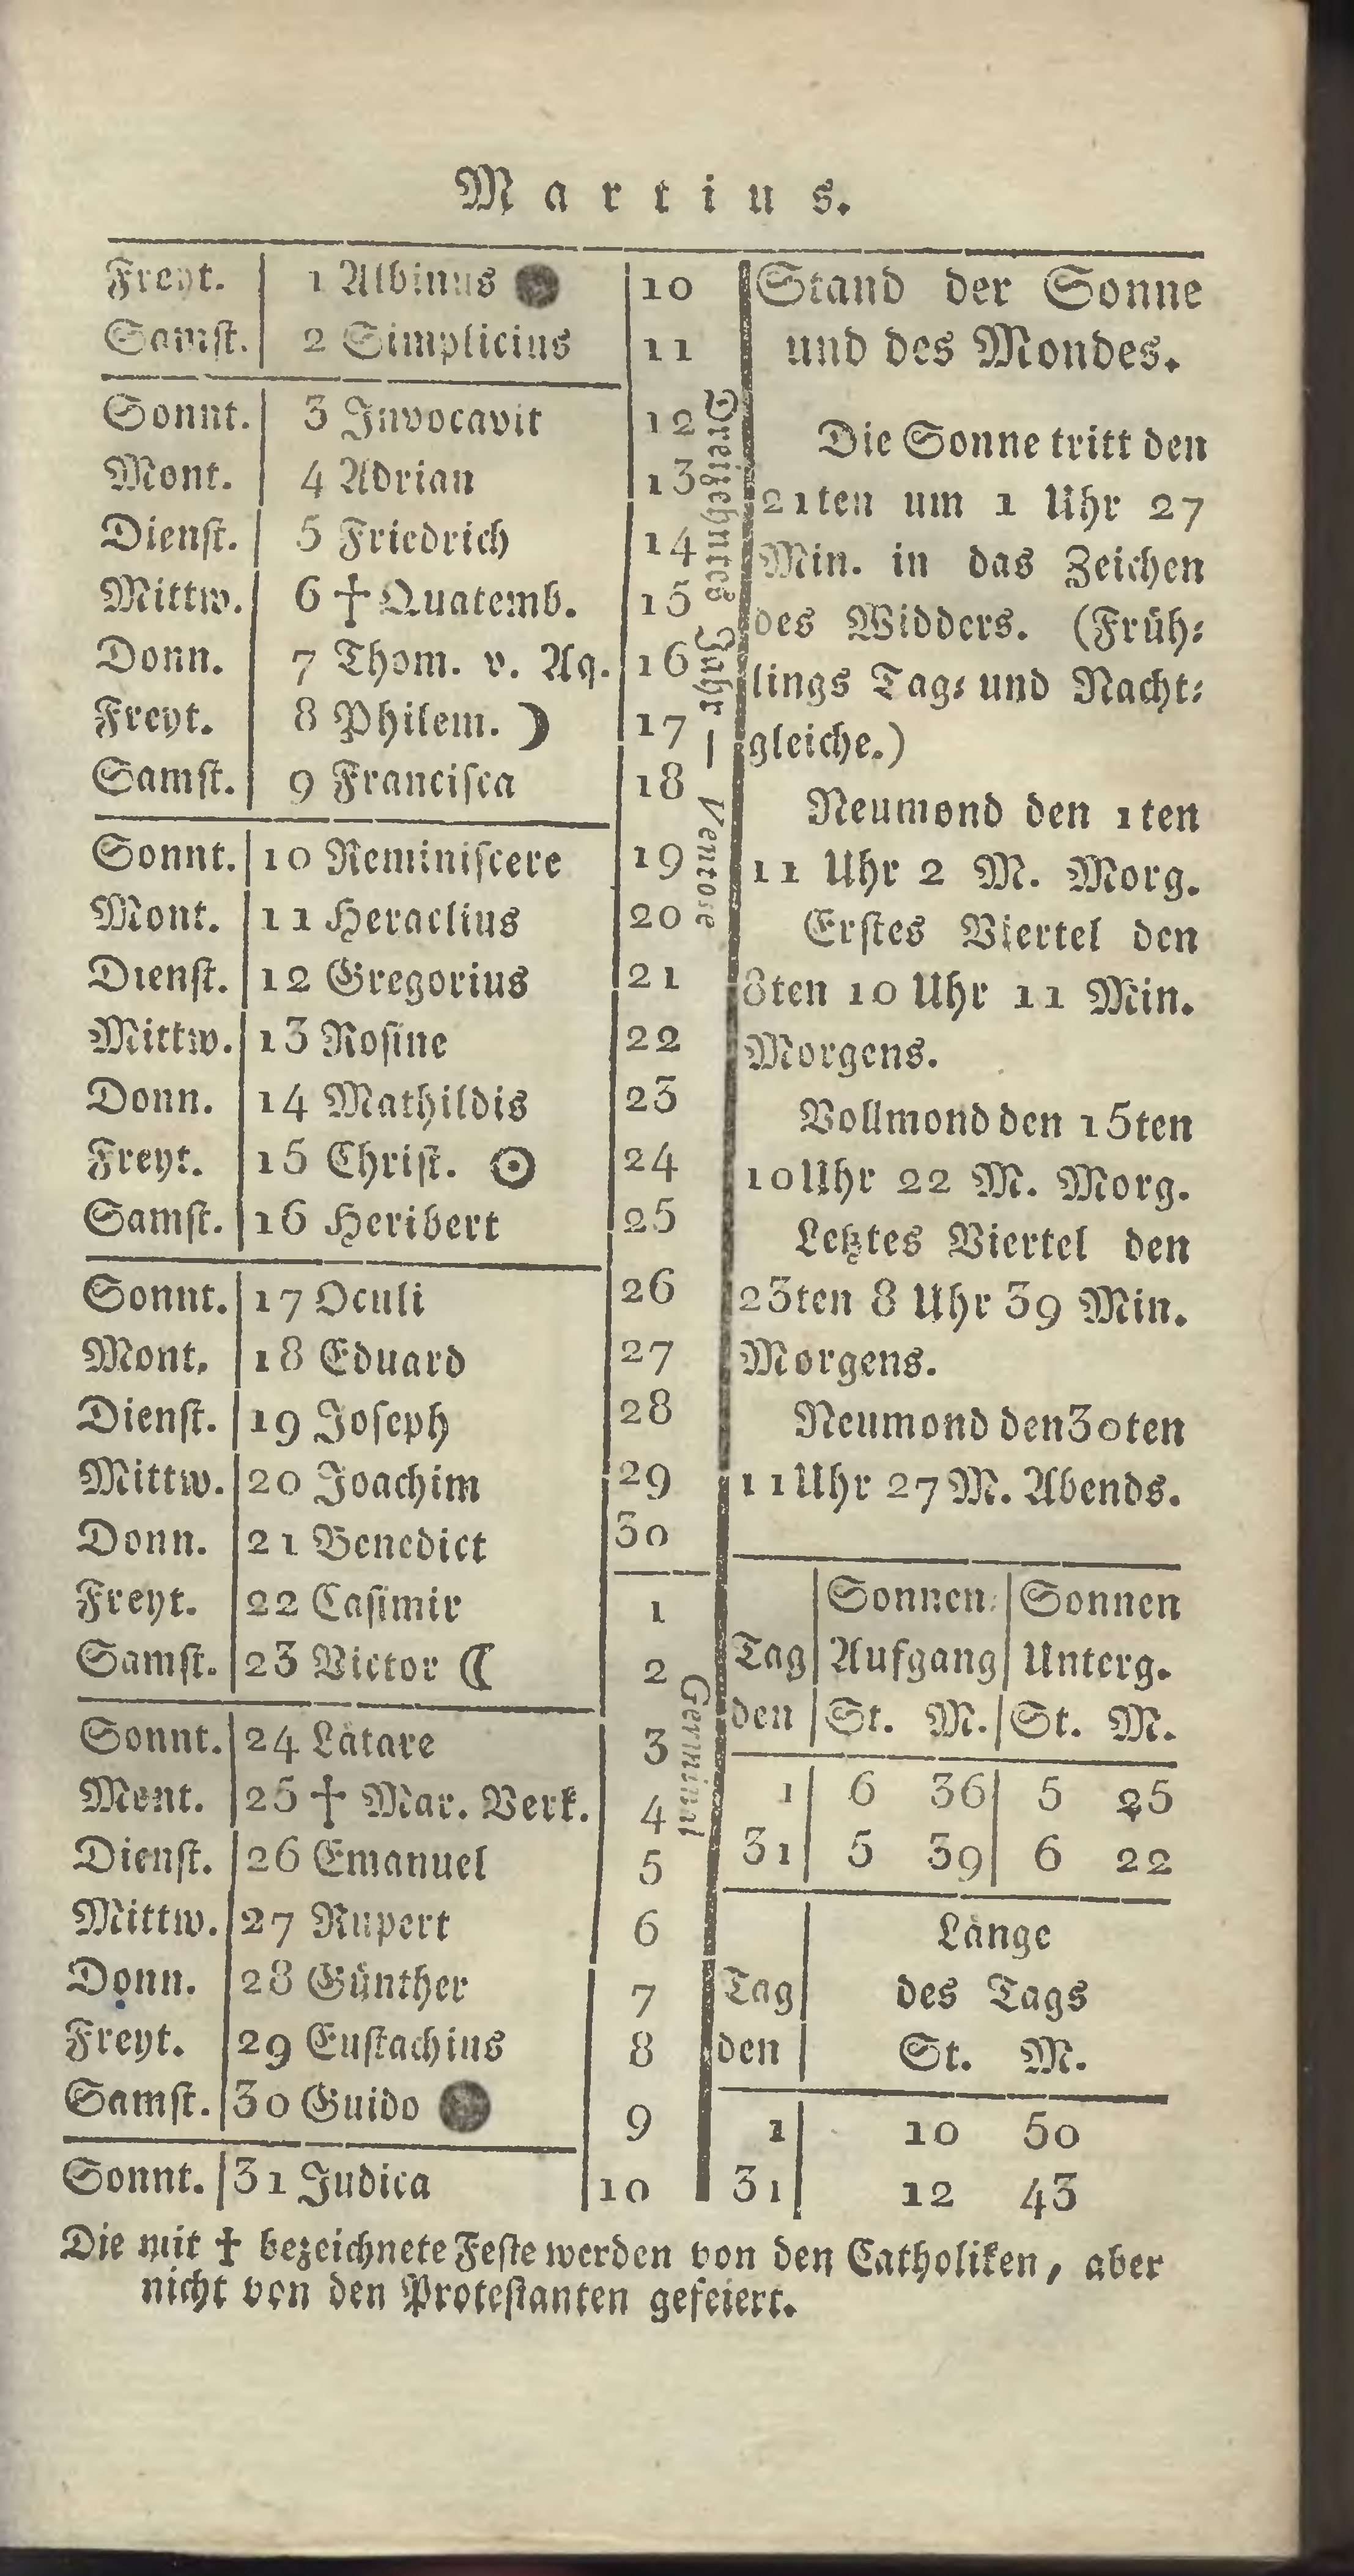 Martius.
Freyt. 1 Albinus 10
Samst. 2 Simplicius 11
Sonnt. 3 Invocavit 12
Mont. 4 Adrian 13
Dienst. 5 Friedrich 14
Mittw. 6 † Quatemb. 15
Donn. 7 Thom. v. Aq. 16
Freyt. 8 Philem. ☽ 17
Samst. 9 Francisca 18
Sonnt. 10 Reminiscere 19
Mont. 11 Heraclius 20
Dienst. 12 Gregorius 21
Mittw. 13 Rosine 22
Donn. 14 Mathildis 23
Freyt. 15 Christ. ☉ 24
Samst. 16 Heribert 25
Sonnt. 17 Oculi 26
Mont. 18 Eduard 27
Dienst. 19 Joseph 28
Mittw. 20 Joachim 29
Donn. 21 Benedict 30
Freyt. 22 Casimir 1
Samst. 23 Victor ☾ 2
Sonnt. 24 Lätare 3
Mont. 25 † Mar. Verk. 4
Dienst. 26 Emanuel 5
Mittw. 27 Rupert 6
Donn. 28 Günther 7
Freyt. 29 Eustachius 8
Samst. 30 Guido 9
Sonnt. 31 Judica 10
Dreizehntes Jahr — Ventose
Germinal
Stand der Sonne
und des Mondes.
Die Sonne tritt den
21ten um 1 Uhr 27
Min. in das Zeichen
des Widders. (Früh-
lings Tag- und Nacht-
gleiche.)
Neumond den 1ten
11 Uhr 2 M. Morg.
Erstes Viertel den
8ten 10 Uhr 11 Min.
Morgens.
Vollmond den 15ten
10 Uhr 22 M. Morg.
Letztes Viertel den
23ten 8 Uhr 39 Min.
Morgens.
Neumond den 30ten
11 Uhr 27 M. Abends.
Sonnen- Sonnen
Tag Aufgang Unterg.
den St. M. St. M.
1 6 36 5 25
31 5 39 6 22
Länge
Tag des Tags
den St. M.
1 10 50
31 12 43
Die mit † bezeichnete Feste werden von den Catholiken, aber
nicht von den Protestanten gefeiert.